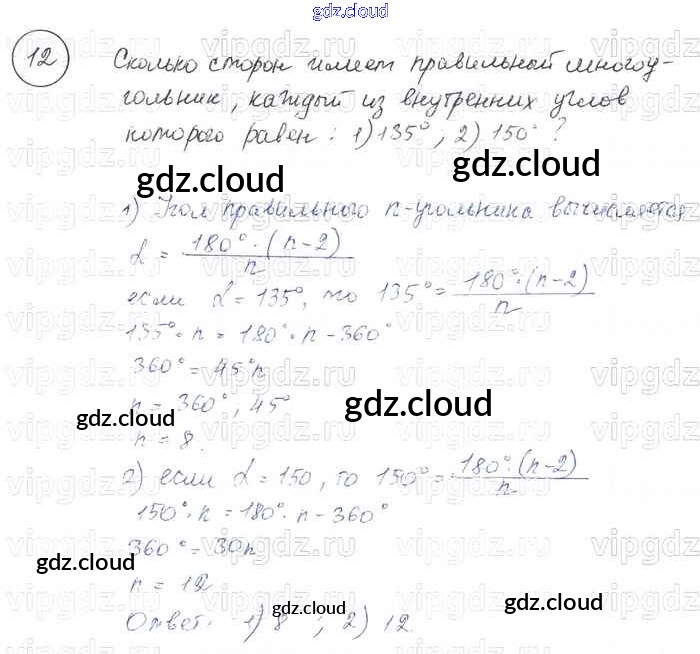 gdz.cloud
12 Сколько сторон имеет правильный многоу-
гольник, каждый из внутренних углов
которого равен: 1) 135°; 2) 150°?
gdz.cloud gdz.cloud
1) Угол правильного n-угольника вычисляется
α = 180°·(n-2)/n
если α = 135°, то 135° = 180°·(n-2)/n
135°·n = 180°·n - 360°
360° = 45°n
n = 360° : 45°
gdz.cloud gdz.cloud
n = 8.
2) если α = 150, то 150° = 180°·(n-2)/n
150°·n = 180°·n - 360°
360° = 30n
gdz.cloud gdz.cloud
n = 12
Ответ: 1) 8 ; 2) 12.
gdz.cloud gdz.cloud